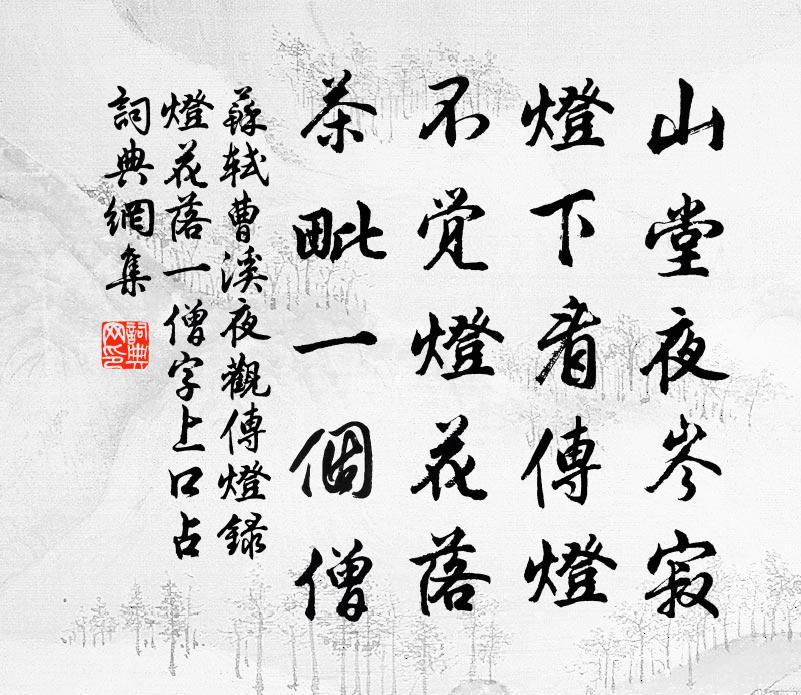 山堂夜岑寂
燈下看傳燈
不覚燈花落
茶毗一個僧
蘇軾曹溪夜觀傳燈錄
燈花落一僧字上口占
詞典網集
詞典網印